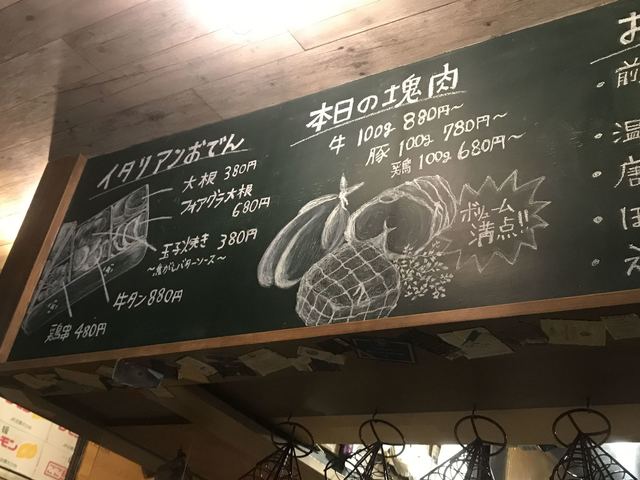 イタリアンおでん
大根 380円
フォアグラ大根
680円
玉子焼き 380円
～焦がしバターソース～
牛タン 880円
鶏串 480円
本日の塊肉
牛 100g 880円～
豚 100g 780円～
鶏 100g 680円～
ボリューム
満点!!
お
・前
・温
・唐
・ほ
モン